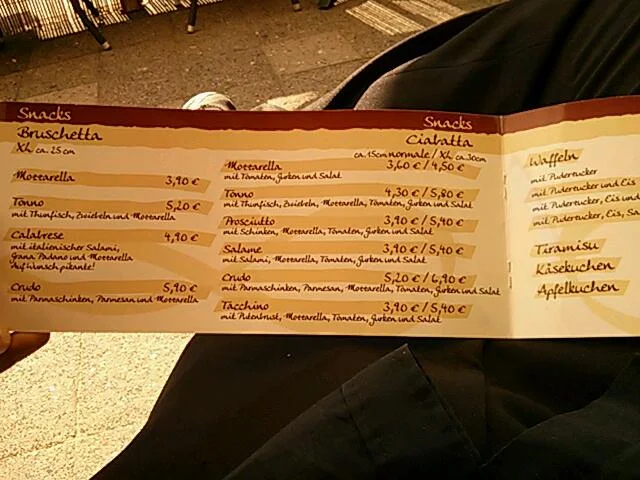 Snacks
Bruschetta
XL ca. 25 cm
Mottarella 3,90 €
Tonno 5,20 €
mit Thunfisch, Zwiebeln und Mottarella
Calabrese 4,90 €
mit italienischer Salami,
Grana Padano und Mottarella
Auf Wunsch pikante!
Crudo 5,90 €
mit Parmaschinken, Parmesan und Mottarella
Snacks
Ciabatta
ca. 15cm normale / XL ca. 30cm
Mottarella 3,60 € / 4,50 €
mit Tomaten, Gurken und Salat
Tonno 4,30 € / 5,80 €
mit Thunfisch, Zwiebeln, Mottarella, Tomaten, Gurken und Salat
Prosciutto 3,90 € / 5,40 €
mit Schinken, Mottarella, Tomaten, Gurken und Salat
Salame 3,90 € / 5,40 €
mit Salami, Mottarella, Tomaten, Gurken und Salat
Crudo 5,20 € / 6,90 €
mit Parmaschinken, Parmesan, Mottarella, Tomaten, Gurken und Salat
Tacchino 3,90 € / 5,40 €
mit Putenbrust, Mottarella, Tomaten, Gurken und Salat
Waffeln
mit Puderzucker
mit Puderzucker und Eis
mit Puderzucker, Eis und
mit Puderzucker, Eis, und Sa
Tiramisu
Käsekuchen
Apfelkuchen